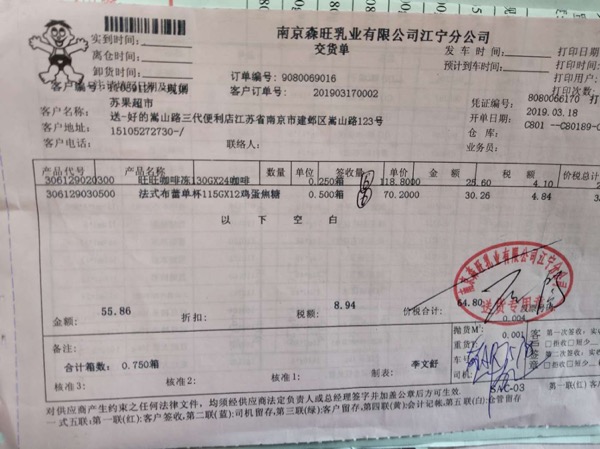 南京森旺乳业有限公司江宁分公司
交货单
实到时间:
离仓时间:
卸货时间:
发车时间:
预计到车时间:
打印日期
打印时间
打印用户:
订单编号: 9080069016
客户订单号: 201903170002
客户名称: 苏果超市
送-好的嵩山路三代便利店江苏省南京市建邺区嵩山路123号
客户地址: 15105272730-/
联络人:
凭证编号: 8080066170
开单日期: 2019.03.18
仓库: C801
业务员:
产品代号 产品名称 数量 单位 签收量 单价 金额 税额 价税总计
306129020300 旺旺咖啡冻130GX24咖啡 0.250箱 6 118.8000 25.60 4.10
306129030500 法式布蕾单杯115GX12鸡蛋焦糖 0.500箱 6 70.2000 30.26 4.84
以下空白
南京森旺乳业有限公司江宁分公司
送货专用章
金额: 55.86 折扣: 税额: 8.94 价税合计: 64.80
0.004
备注:
抛货M³ 0.001
重货
车号
合计箱数: 0.750箱
核准3: 核准2: 核准1: 制表: 李文舒
客 第一次签收, 实收
拒收 短少
第二次签收, 实收
拒收 短少
-03
第一联(红)
对供应商产生约束之任何法律文件, 均须经供应商法定负责人或总经理签字并加盖公章后方可生效.
一式五联: 第一联(红): 客户签收, 第二联(蓝): 司机留存, 第三联(绿): 客户留存, 第四联(黄): 会计记帐, 第五联(白): 仓管留存